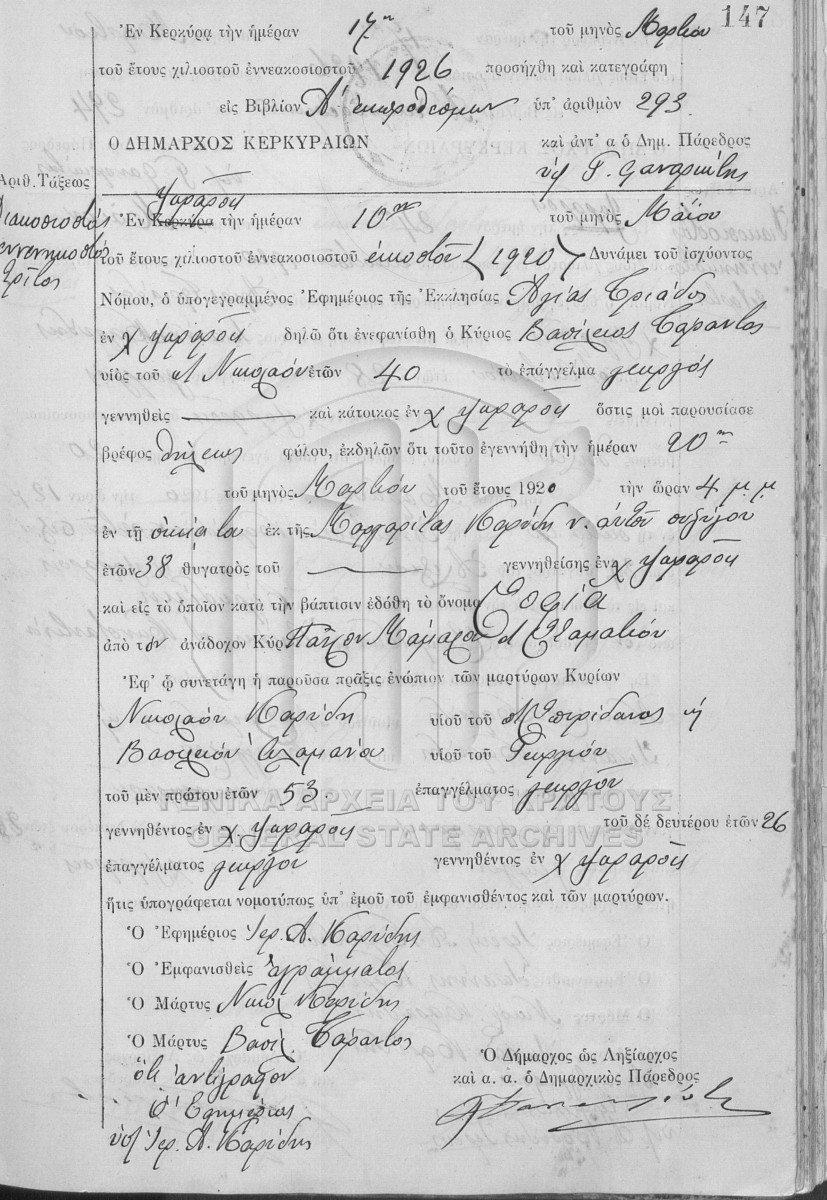 147
Ἐν Κερκύρᾳ τὴν ἡμέραν 17ην τοῦ μηνὸς Μαρτίου
τοῦ ἔτους χιλιοστοῦ ἐννεακοσιοστοῦ 1926 προσήχθη καὶ κατεγράφη
εἰς Βιβλίον Α' ἐκπροθέσμων ὑπ' ἀριθμὸν 293
Ο ΔΗΜΑΡΧΟΣ ΚΕΡΚΥΡΑΙΩΝ καὶ ἀντ' α ὁ Δημ. Πάρεδρος
Ἀριθ. Τάξεως
Διακοσιοστός
ἐννενηκοστός
τρίτος
Ἐν Κερκύρᾳ τὴν ἡμέραν 10ην τοῦ μηνὸς Μαΐου
τοῦ ἔτους χιλιοστοῦ ἐννεακοσιοστοῦ εἰκοστοῦ (1920) Δυνάμει τοῦ ἰσχύοντος
Νόμου, ὁ ὑπογεγραμμένος Ἐφημέριος τῆς Ἐκκλησίας Ἁγίας Τριάδος
ἐν χ δηλῶ ὅτι ἐνεφανίσθη ὁ Κύριος Βασίλειος Σαράντος
υἱὸς τοῦ Νικολάου ἐτῶν 40 τὸ ἐπάγγελμα γεωργός
γεννηθεὶς καὶ κάτοικος ἐν χ ὅστις μοὶ παρουσίασε
βρέφος θήλεως φύλου, ἐκδηλῶν ὅτι τοῦτο ἐγεννήθη τὴν ἡμέραν 20ην
τοῦ μηνὸς Μαρτίου τοῦ ἔτους 1920 τὴν ὥραν 4 μ.μ.
ἐν τῇ οἰκίᾳ του ἐκ τῆς Μαργαρίτας Καρύδη ν. αὐτοῦ συζύγου
ἐτῶν 38 θυγατρὸς τοῦ γεννηθείσης ἐν χ
καὶ εἰς τὸ ὁποῖον κατὰ τὴν βάπτισιν ἐδόθη τὸ ὄνομα Σοφία
ἀπὸ τὸν ἀνάδοχον Κύρ Παῦλον Σταματίου
Ἐφ' ᾧ συνετάγη ἡ παροῦσα πρᾶξις ἐνώπιον τῶν μαρτύρων Κυρίων
Νικολάου Καρύδη υἱοῦ τοῦ Σπυρίδωνος ἡ
Βασιλείου υἱοῦ τοῦ Γεωργίου
τοῦ μὲν πρώτου ἐτῶν 53 ἐπαγγέλματος γεωργοῦ
ΓΕΝΙΚΑ ΑΡΧΕΙΑ ΤΟΥ ΚΡΑΤΟΥΣ
γεννηθέντος ἐν χ. τοῦ δὲ δευτέρου ἐτῶν 26
GENERAL STATE ARCHIVES
ἐπαγγέλματος γεωργοῦ γεννηθέντος ἐν χ
ἥτις ὑπογράφεται νομοτύπως ὑπ' ἐμοῦ τοῦ ἐμφανισθέντος καὶ τῶν μαρτύρων.
Ὁ Ἐφημέριος Ἱερ. Α. Καρύδης
Ὁ Ἐμφανισθεὶς ἀγράμματος
Ὁ Μάρτυς Νικολ Καρύδης
Ὁ Μάρτυς Βασιλ Σαράντος
Ὁ Δήμαρχος ὡς Ληξίαρχος
καὶ α. α. ὁ Δημαρχικὸς Πάρεδρος
ὅτι ἀντίγραφον
Ὁ Ἐφημέριος
ὑπ Ἱερ. Α. Καρύδης